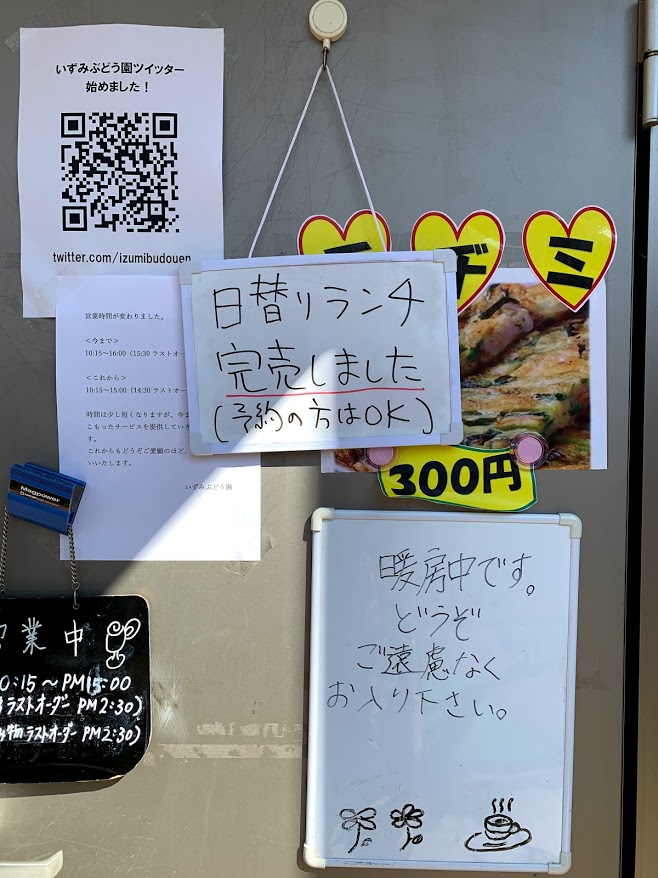 いずみぶどう園ツイッター
始めました！
twitter.com/izumibudouen
営業時間が変わりました。
＜今まで＞
10:15～16:00（15:30 ラストオー
＜これから＞
10:15～15:00（14:30 ラストオー
時間は少し短くなりますが、今ま
こもったサービスを提供していき
す。
これからもどうぞご愛顧のほど、
いいたします。
いずみぶどう園
日替りランチ
完売しました
(予約の方はOK)
ヂミ
300円
Magpower
業中
0:15～PM15:00
ラストオーダー PM2:30)
物ラストオーダー PM2:30)
暖房中です。
どうぞ
ご遠慮なく
お入り下さい。